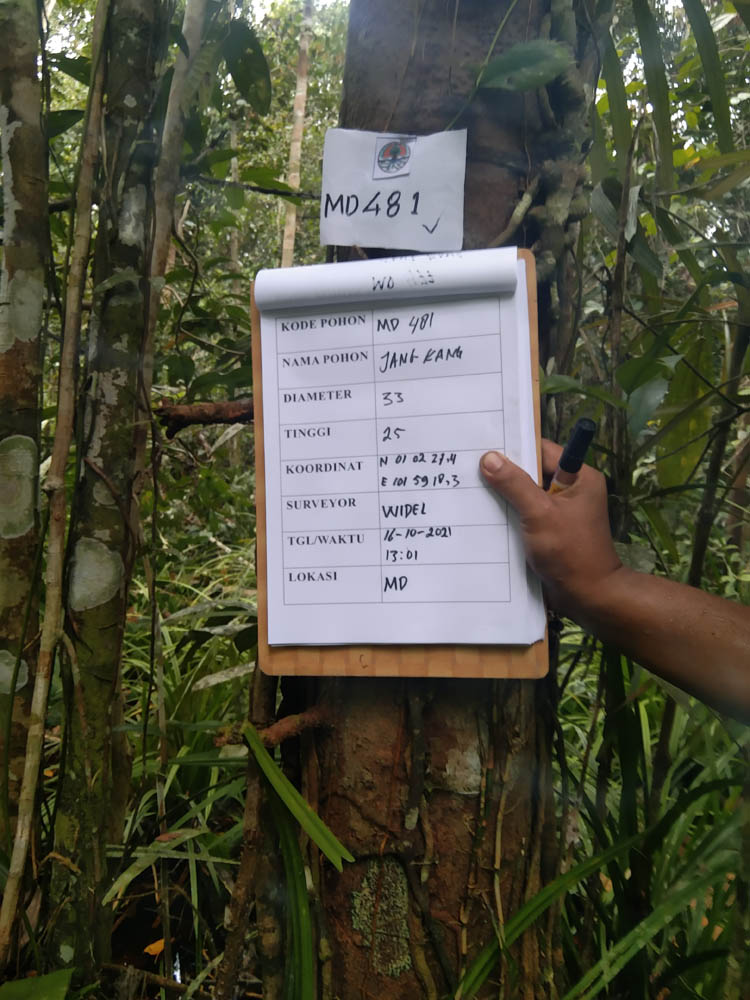 MD481
WO
KODE POHON MD 481
NAMA POHON JANG KANG
DIAMETER 33
TINGGI 25
KOORDINAT N 01 02 27,4
E 101 59 18,3
SURVEYOR WIDEL
TGL/WAKTU 16-10-2021
13:01
LOKASI MD